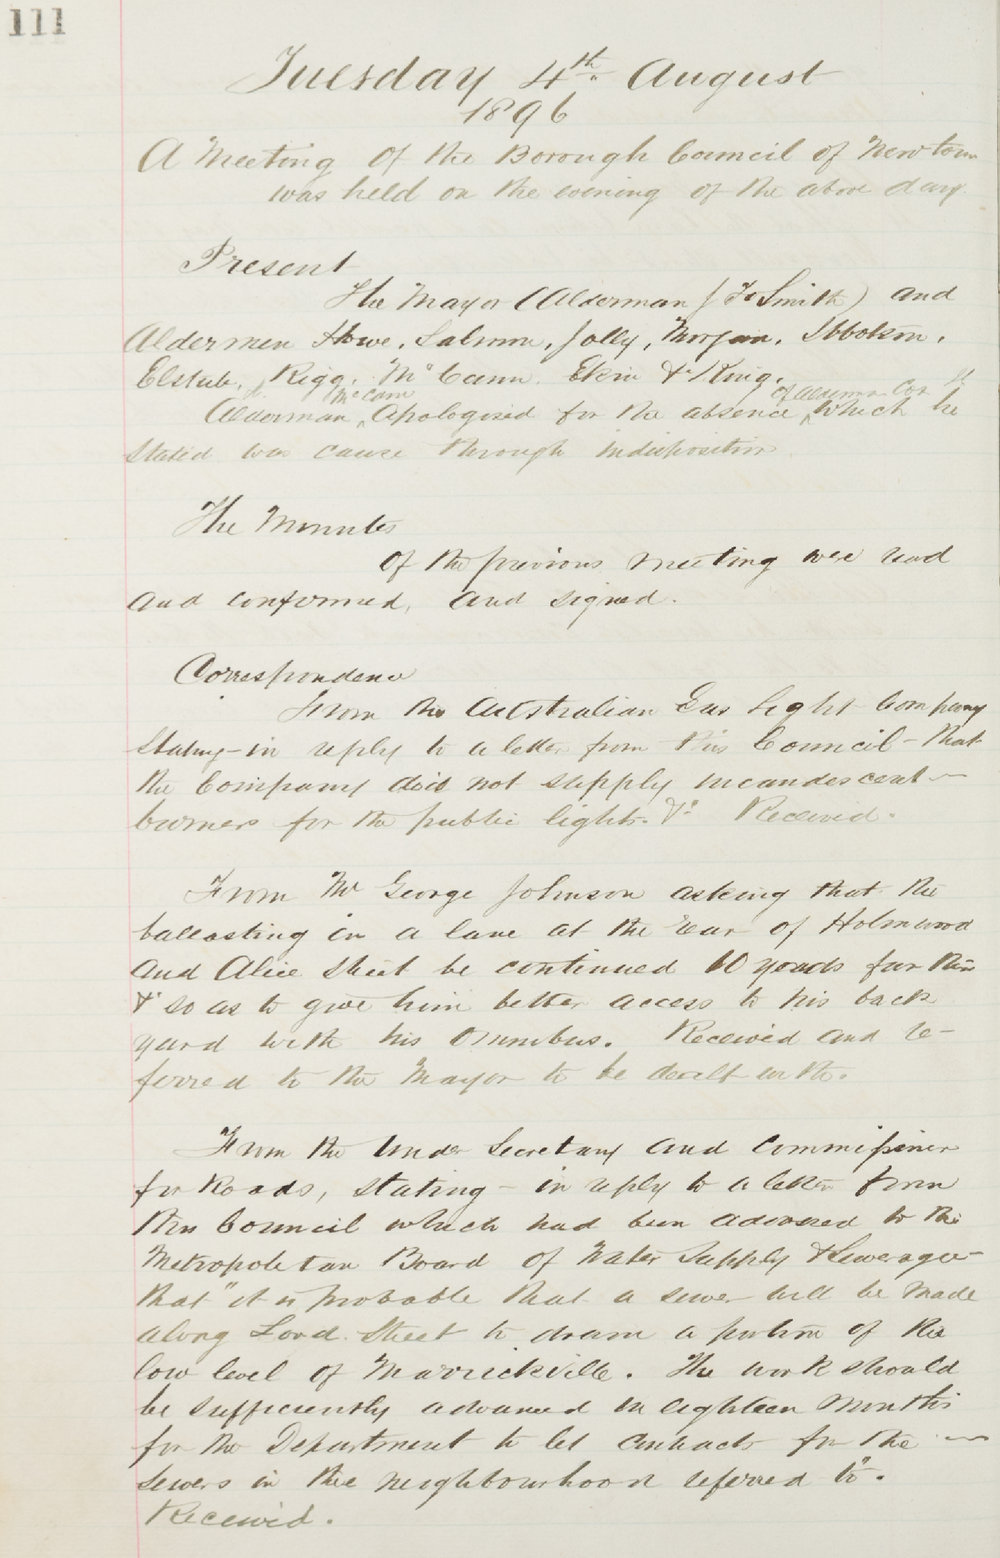 111
Tuesday 4th. August
1896
A Meeting of the Borough Council of Newtown
was held on the evening of the above day.
Present
The Mayor (Alderman J. F. Smith) and
Aldermen Howe, Salmon, Jolly, Morgan, Ibbotson,
Elstub, Rigg, McCann, Ekin & King.
Alderman McCann Apologised for the absence of Alderman Cox which he
stated was cause through indisposition
The Minutes
of the previous meeting were read
and confirmed, and signed.
Correspondence
From the Australian Gas Light Company
stating - in reply to a letter from this Council - that
the Company did not supply incandescent
burners for the public lights. &c Received.
From Mr George Johnson asking that the
ballasting in a lane at the rear of Holmwood
and Alice Street be continued 10 yards further
& so as to give him better access to his back
yard with his Omnibus. Received and re-
ferred to the Mayor to be dealt with.
From the Under Secretary and Commissioner
for Roads, stating - in reply to a letter from
this Council which had been addressed to the
Metropolitan Board of Water Supply & Sewerage -
that "it is probable that a sewer will be made
along Lord Street to drain a portion of the
low level of Marrickville. The work should
be sufficiently advanced in eighteen months
for the Department to let contracts for the
sewers in the neighbourhood referred to".
Received.